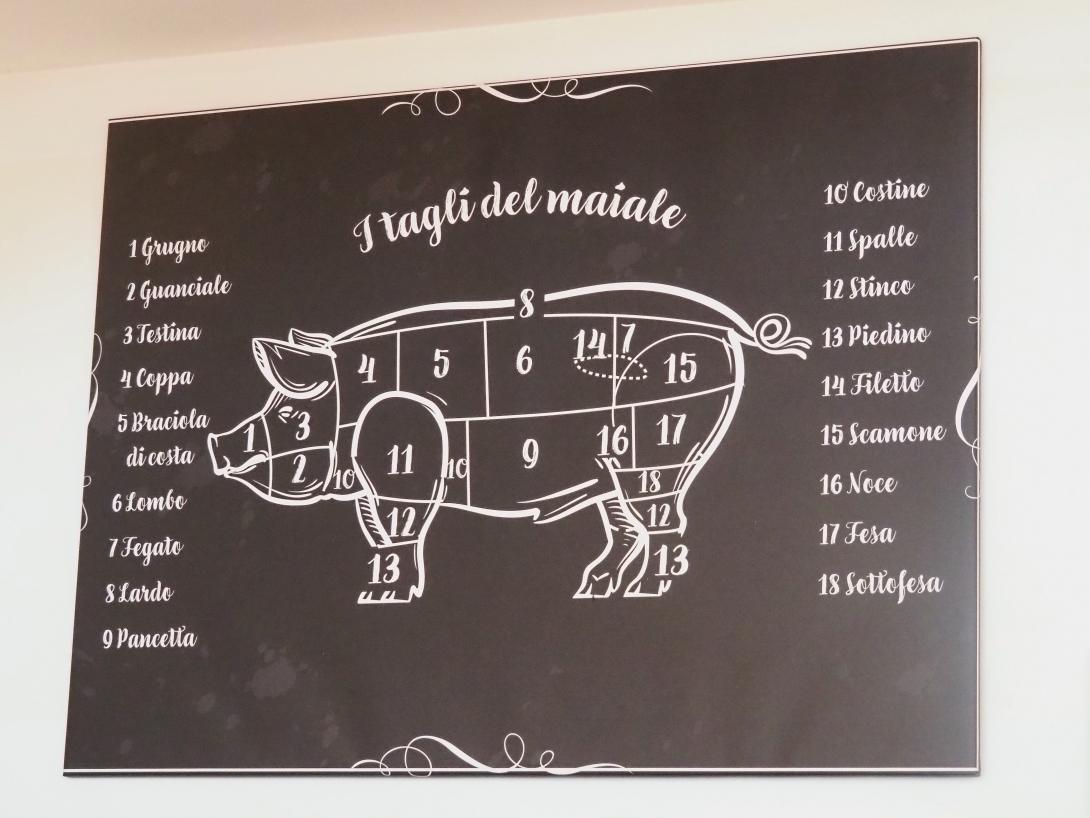 I tagli del maiale
1 Grugno
2 Guanciale
3 Testina
4 Coppa
5 Braciola
di costa
6 Lombo
7 Fegato
8 Lardo
9 Pancetta
10 Costine
11 Spalle
12 Stinco
13 Piedino
14 Filetto
15 Scamone
16 Noce
17 Fesa
18 Sottofesa
8
4 5 6 14 7 15
1 3 2 10 11 10 9 16 17
18
12 12
13 13